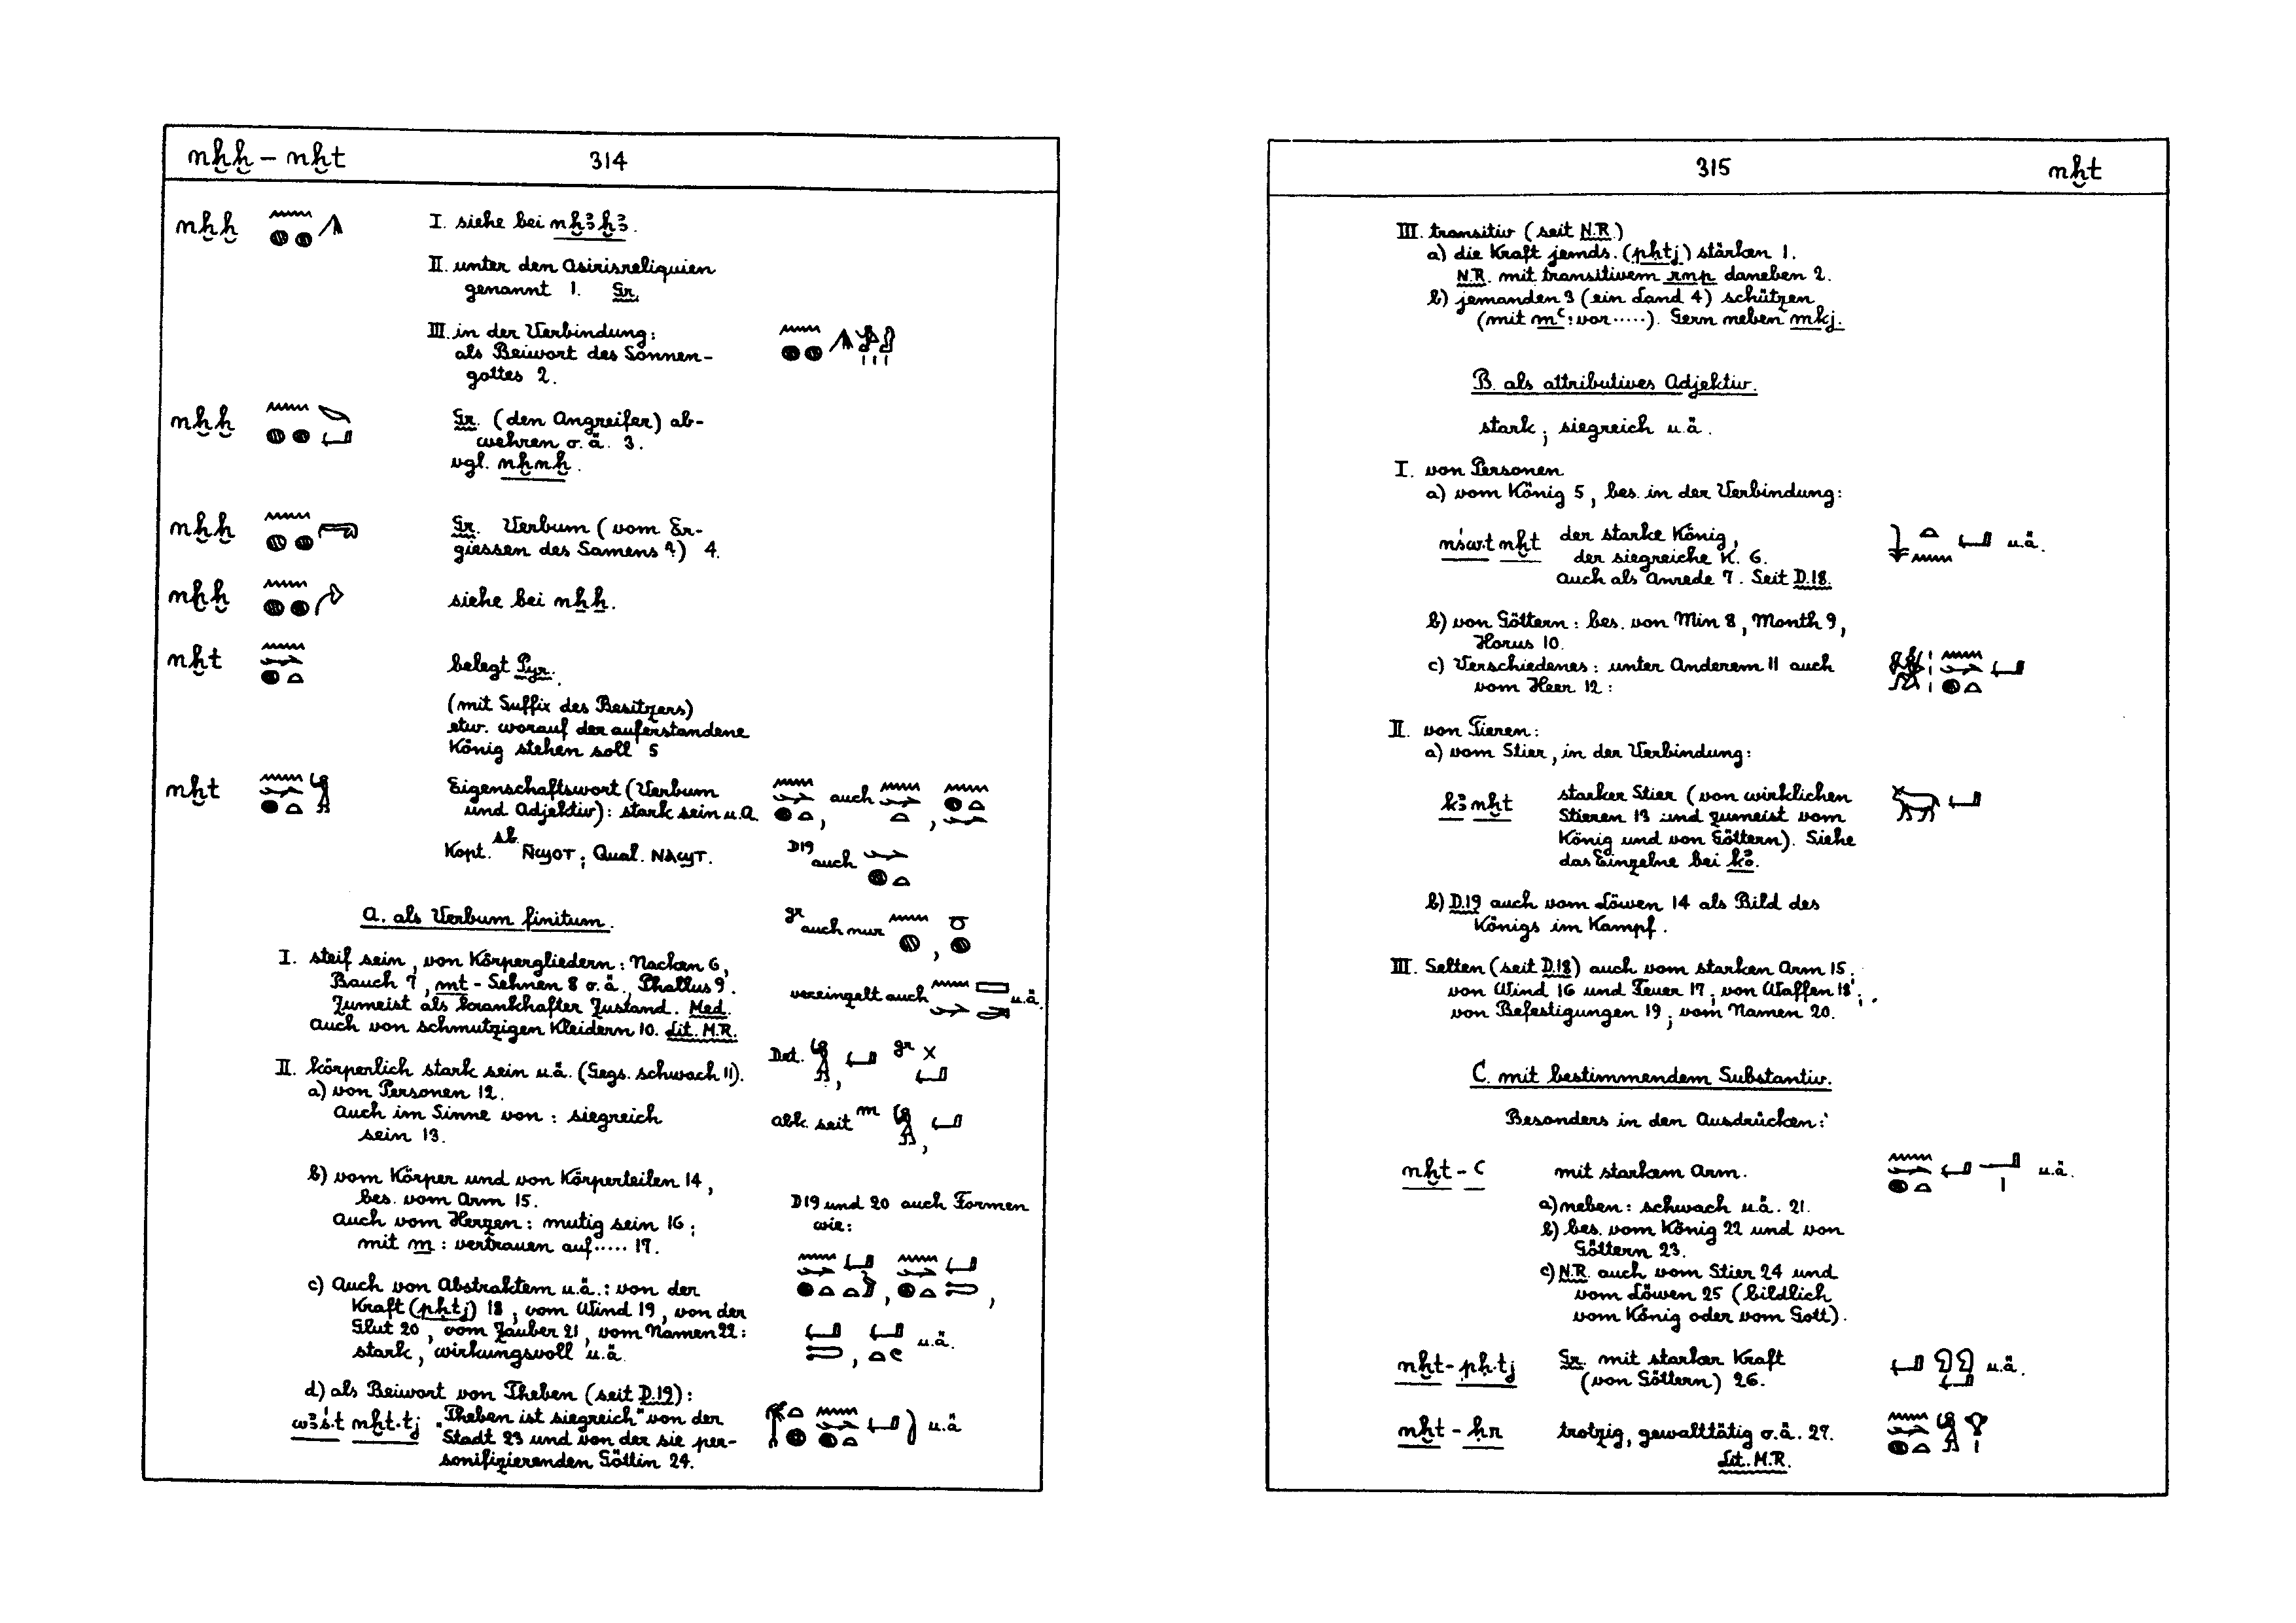 nḫḫ – nḫt 314
nḫḫ I. siehe bei nḫꜣḫꜣ.
II. unter den Osirisreliquien
genannt 1. Gr.
III. in der Verbindung:
als Beiwort des Sonnen-
gottes 2.
nḫḫ Gr. (den Angreifer) ab-
wehren o.ä. 3.
vgl. nḫnḫ.
nḫḫ Gr. Verbum (vom Er-
giessen des Samens?) 4.
nḫḫ siehe bei nẖẖ.
nḫt belegt Pyr.
(mit Suffix des Besitzers)
etw. worauf der auferstandene
König stehen soll 5
nḫt Eigenschaftswort (Verbum
und Adjektiv): stark sein u.a. , auch ,
Kopt. Sb. ⲚϢⲞⲦ; Qual. ⲚⲀϢⲦ. D19 auch
A. als Verbum finitum. gr auch nur ,
I. steif sein, von Körpergliedern: Nacken 6,
Bauch 7, mt-Sehnen 8 o.ä., Phallus 9.
Zumeist als krankhafter Zustand. Med.
Auch von schmutzigen Kleidern 10. Lit. M.R.
vereinzelt auch u.ä.
II. körperlich stark sein u.ä. (Gegs. schwach 11).
Det. , gr
a) von Personen 12.
Auch im Sinne von: siegreich
sein 13.
abk. seit m ,
b) vom Körper und von Körperteilen 14,
bes. vom Arm 15.
Auch vom Herzen: mutig sein 16;
mit m: vertrauen auf..... 17.
D19 und 20 auch Formen
wie:
c) Auch von Abstraktem u.ä.: von der
Kraft (pḥtj) 18, vom Wind 19, von der
Glut 20, vom Zauber 21, vom Namen 22:
stark, wirkungsvoll u.ä.
, u.ä.
d) als Beiwort von Theben (seit D.19):
wꜣś.t nḫt.tj „Theben ist siegreich" von der u.ä
Stadt 23 und von der sie per-
sonifizierenden Göttin 24.
315 nḫt
III. transitiv (seit N.R.)
a) die Kraft jemds. (pḥtj) stärken 1.
N.R. mit transitivem rnp daneben 2.
b) jemanden 3 (ein Land 4) schützen
(mit mꜥ: vor.....). Gern neben mkj.
B. als attributives Adjektiv.
stark; siegreich u.ä.
I. von Personen
a) vom König 5, bes. in der Verbindung:
nśw.t nḫt der starke König, u.ä.
der siegreiche K. 6.
Auch als Anrede 7. Seit D.18.
b) von Göttern: bes. von Min 8, Month 9,
Horus 10.
c) Verschiedenes: unter Anderem 11 auch
vom Heer 12:
II. von Tieren:
a) vom Stier, in der Verbindung:
kꜣ nḫt starker Stier (von wirklichen
Stieren 13 und zumeist vom
König und von Göttern). Siehe
das Einzelne bei kꜣ.
b) D.19 auch vom Löwen 14 als Bild des
Königs im Kampf.
III. Selten (seit D.18) auch vom starken Arm 15;
von Wind 16 und Feuer 17; von Waffen 18;
von Befestigungen 19; vom Namen 20.
C. mit bestimmendem Substantiv.
Besonders in den Ausdrücken:
nḫt-ꜥ mit starkem Arm. u.ä.
a) neben: schwach u.ä. 21.
b) bes. vom König 22 und von
Göttern 23.
c) N.R. auch vom Stier 24 und
vom Löwen 25 (bildlich
vom König oder vom Gott).
nḫt-pḥ.tj Gr. mit starker Kraft u.ä.
(von Göttern) 26.
nḫt-ḥr trotzig, gewalttätig o.ä. 27.
Lit. M.R.